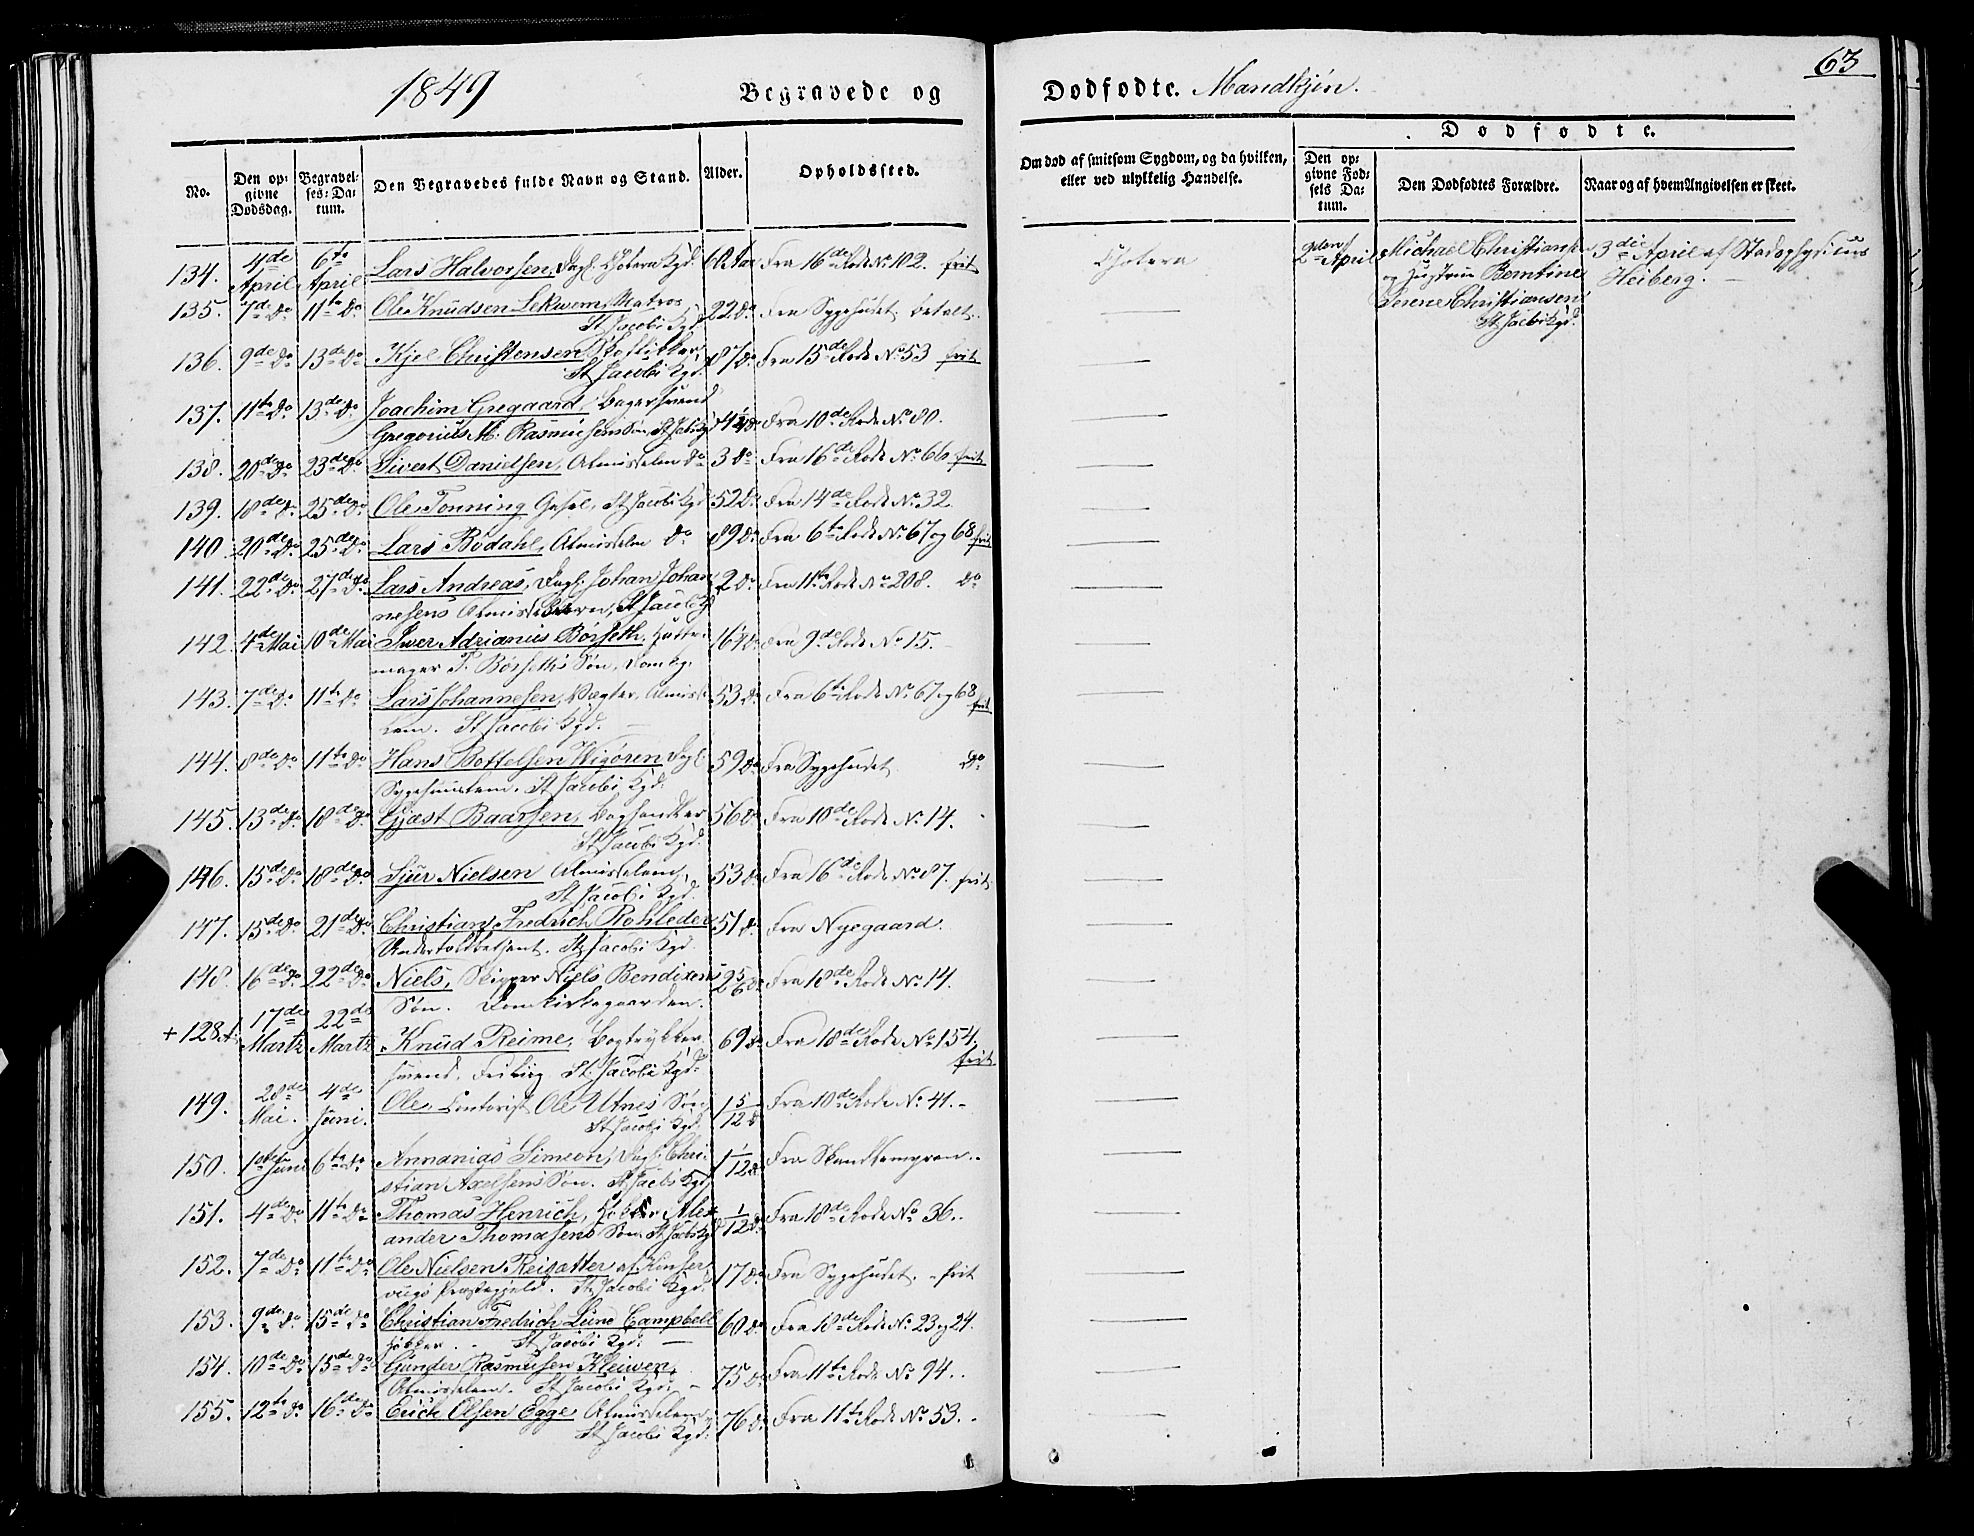 1849
Begravede og
Dodfodte. Mandkjön.
63
No.
Den opgivne Dodsdag.
Begravelses-Datum.
Den Begravedes fulde Navn og Stand.
Alder.
Opholdssted.
Om dod af smitsom Sygdom, og da hvilken, eller ved ulykkelig Hændelse.
Dodfodte.
Den opgivne Fodsels Datum.
Den Dodfodtes Forældre.
Naar og af hvem Angivelsen er skeet.
134. 4de April 6te April Lars Halvorsen, Kgd. 60 Aar Fra 16de Rode No. 102. frit Cholera
2den April Michael Christiansen og Hustrue Berntine Serene Christiansen St Jacobi Kgd.
3die April af Stadsphysicus Heiberg.
135. 7de Do 11te Do Ole Knudsen Lekwem, Matros St Jacobi Kgd. 22 Do Fra Sygehuset. betalt.
136. 9de Do 13de Do Kjel Christensen, St Jacobi Kgd. 87 Do Fra 15de Rode No 53 frit
137. 11te Do 13de Do Joachim Gregaard, Bagersvend
Gregorius M. Rasmusens Søn, St Jacobi Kgd Fra 10de Rode No. 80.
138. 20de Do 23de Do Sivert Danielsen, Almisselem Do 3 Do Fra 16de Rode No. 66 frit
139. 18de Do 25de Do Ole Tonning St Jacobi Kgd 52 Do Fra 14de Rode No. 32.
140. 20de Do 25de Do Lars Bödahl, Almisselem Do 89 Do Fra 6te Rode No. 67 og 68 frit
141. 22de Do 27de Do Lars Andreas, Dagl. Johan Johan
nesens Søn, St Jacobi Kgd 2 Do Fra 11te Rode No. 208. Do
142. 4de Mai 10de Mai Iver Adrianus Börseth, Hatte-
mager T. Börseths Søn, Domkg. 16 Do Fra 9de Rode No. 15.
143. 7de Do 11te Do Lars Johannesen, Vægter, Almisse-
lem. St Jacobi Kgd. 53 Do Fra 6te Rode No. 67 og 68 frit
144. 8de Do 11te Do Hans Bottolfsen Wigören
Sygehuuslem. St Jacobi Kgd. 59 Do Fra Sygehuset. Do
145. 13de Do 18de Do Gjæst Baarsen, Boghandler
St Jacobi Kgd. 56 Do Fra 18de Rode No. 14.
146. 15de Do 18de Do Sjur Nielsen Almisselem,
St Jacobi Kgd. 53 Do Fra 16de Rode No. 87. frit
147. 15de Do 21de Do Christian Fredrich Rohleder
Undertoldbetjent. St Jacobi Kgd. 51 Do Fra Nyegaard.
148. 16de Do 22de Do Niels, Skipper Niels Bendixens
Søn. Domkirkegaarden. 2 5/6 Do Fra 18de Rode No. 14.
+ 128 A. 17de Martz 22de Martz Knud Reime, Bogtrykker-
svend. St Jacobi Kgd. 69 Do Fra 18de Rode No. 154. frit
149. 28de Mai. 4de Juni. Ole, Contorist Ole Utnes Søn,
St Jacobi Kgd. 1 5/12 Do Fra 18de Rode No. 41.
150. 1ste Juni 6te Do Annanias Simeon, Dagl. Chri-
stian Axelsens Søn. St Jacobi Kgd. 1 1/12 Do Fra Skandsemyren.
151. 4de Do 11te Do Thomas Henrich, Høker Alex-
ander Thomasens Søn. St Jacobi Kgd 1/12 Do Fra 18de Rode No. 36.
152. 7de Do 11te Do Ole Nielsen Reisatter af Kinser-
vigs Præstegjeld. St Jacobi Kgd. 17 Do Fra Sygehuset. frit
153. 9de Do 15de Do Christian Fredrich Lüne Campbell
Høkker. St Jacobi Kgd. 60 Do Fra 18de Rode No. 23 og 24.
154. 10de Do 15de Do Gunder Rasmusen Kleiven,
Almisselem. St Jacobi Kgd. 75 Do Fra 11te Rode No. 94.
155. 12te Do 16de Do Erich Olsen Egge, Almisselem,
St Jacobi Kgd. 76 Do Fra 11te Rode No. 53.